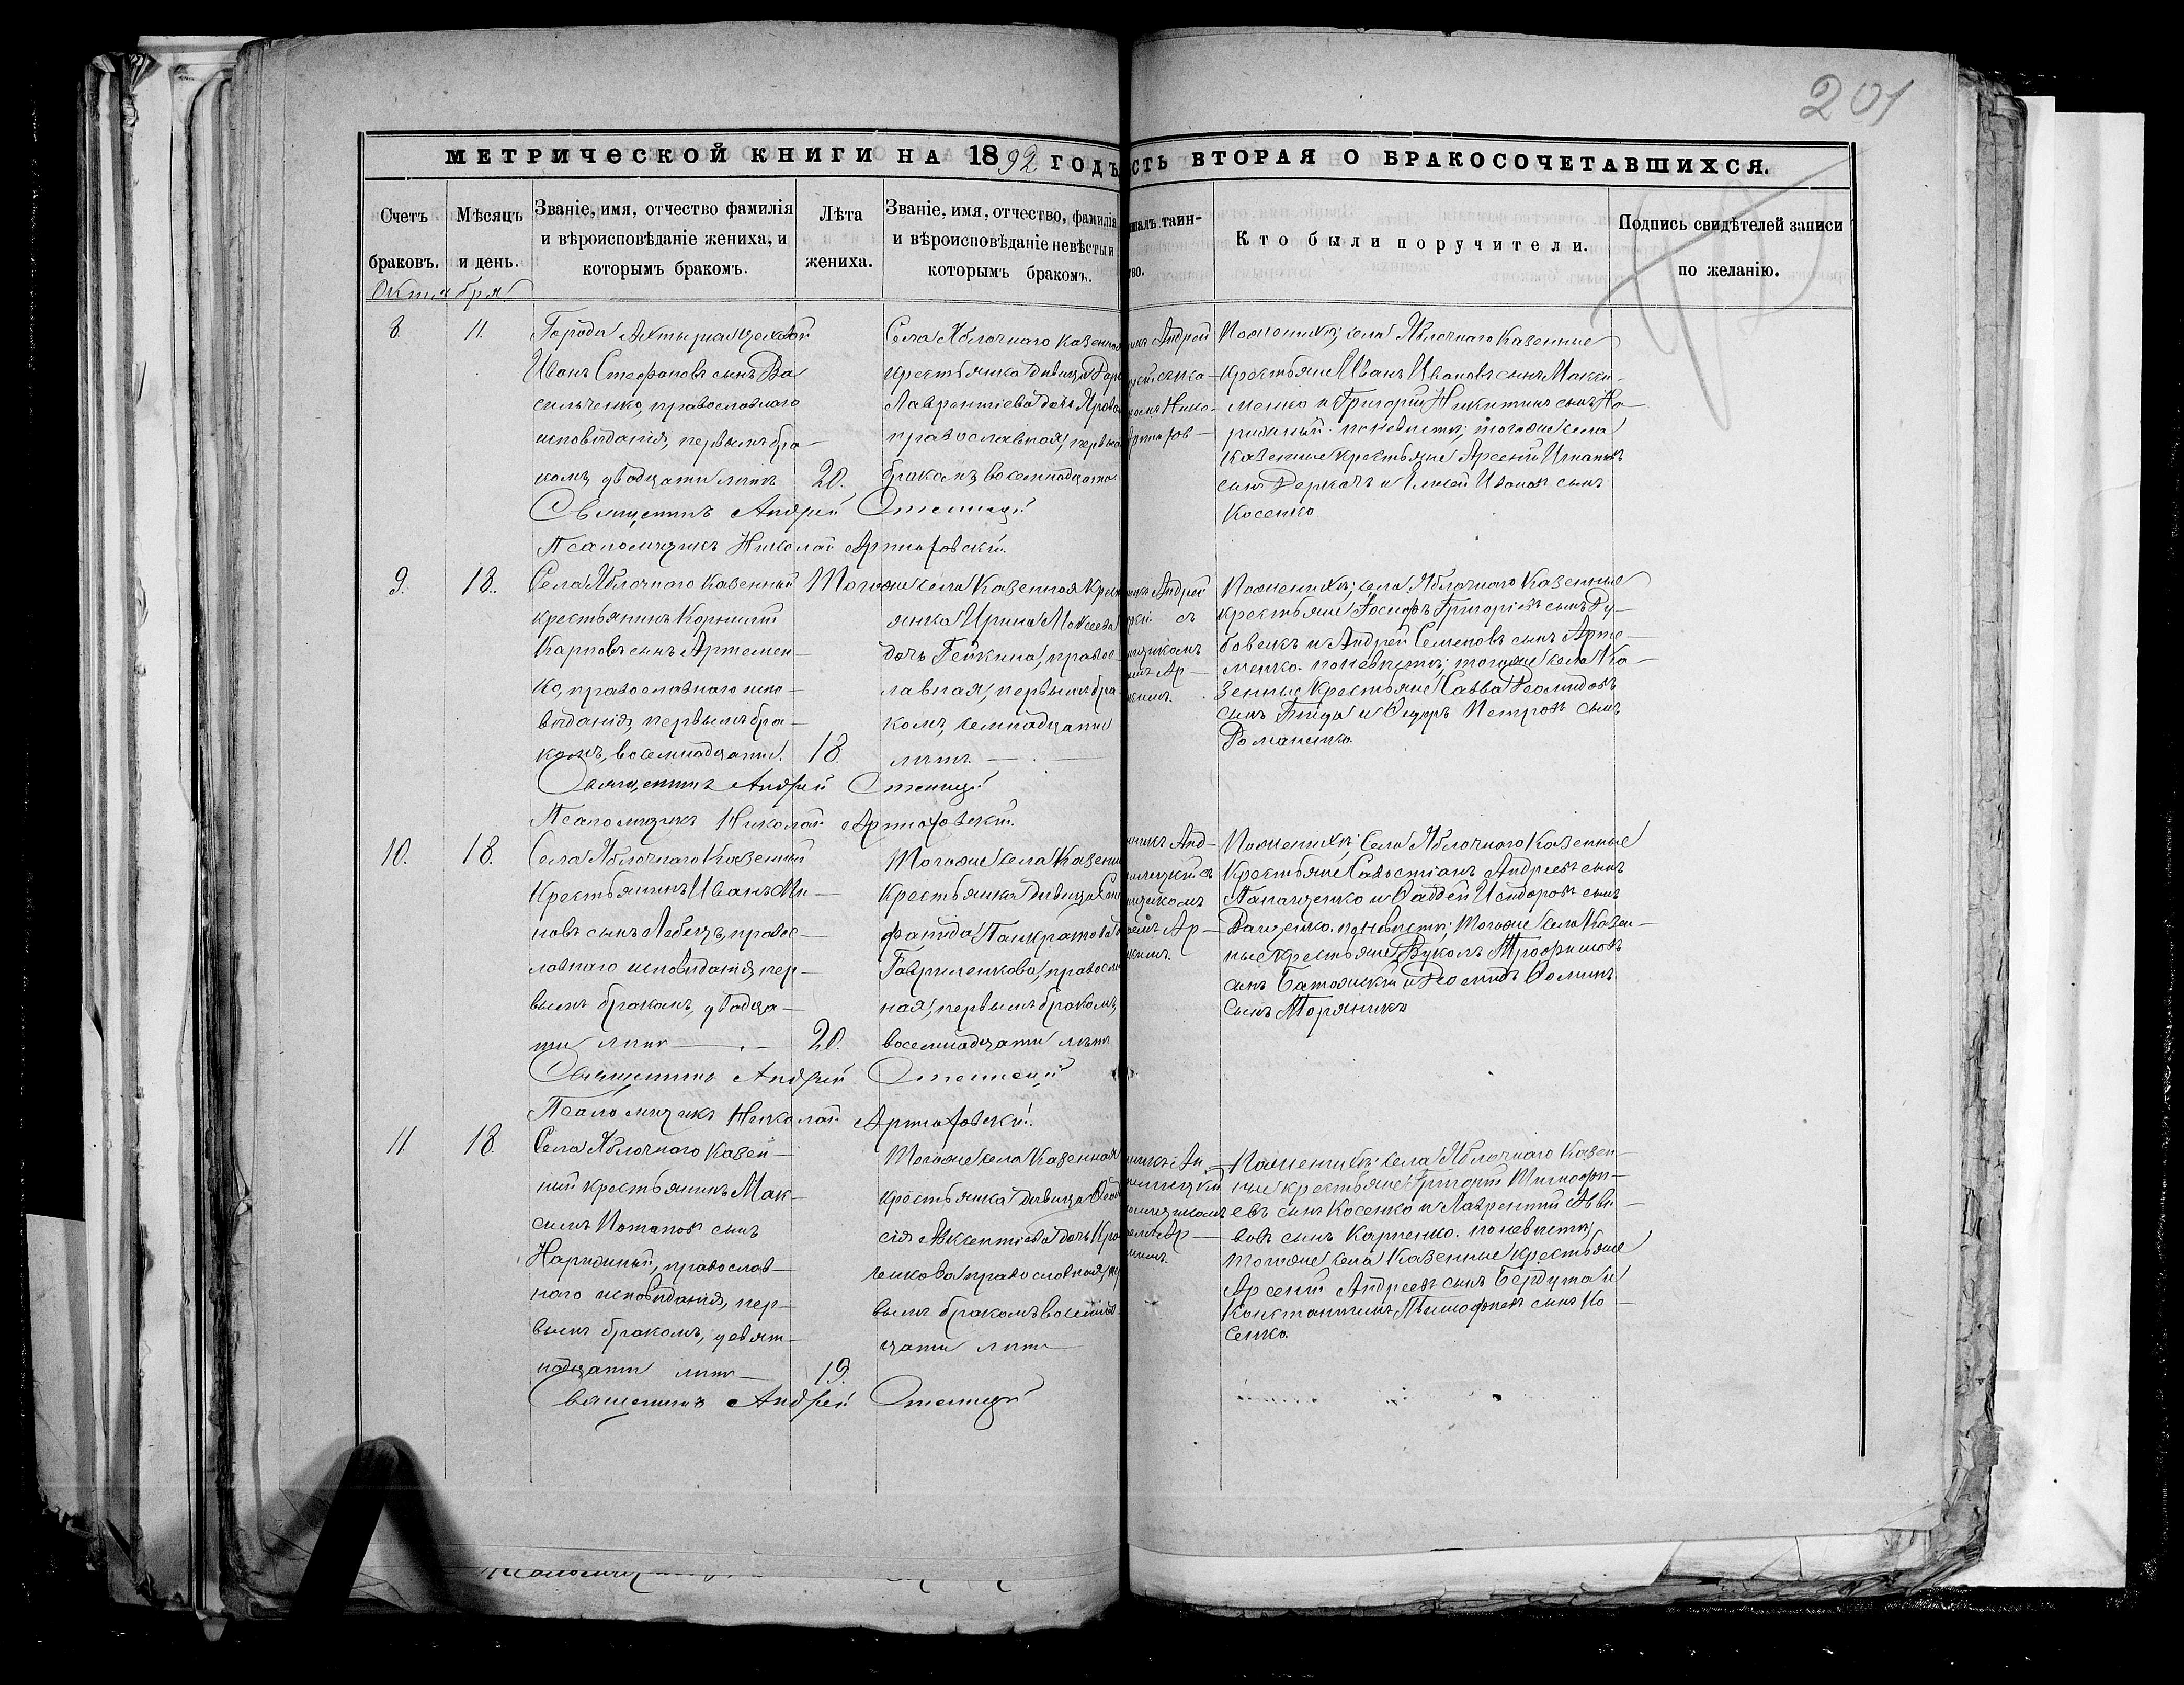 201
МЕТРИЧЕСКОЙ КНИГИ НА 1892 ГОДЪ
СТЬ ВТОРАЯ О БРАКОСОЧЕТАВШИХСЯ.
Счетъ браковъ.
Мѣсяцъ и день.
Званіе, имя, отчество фамилія
и вѣроисповѣданіе жениха, и
которымъ бракомъ.
Лѣта
жениха.
Званіе, имя, отчество, фамилія
и вѣроисповѣданіе невѣсты и
которымъ бракомъ.
шалъ таин-
тво.
Кто были поручители.
Подпись свидѣтелей записи
по желанію.
Октября
8. 11.
Города Ахтырки
Иванъ Стефановъ сынъ Ва
сильченко, православнаго
исповѣданія, первымъ бра-
комъ, двадцати лѣтъ
20.
Села Яблочнаго казенная
крестьянка дѣвица Дар
Лаврентіева дочь
православная, первы
бракомъ, восемнадцати
Андрей
Нико-
Артюхов-
По женихѣ; села Яблочнаго казенные
крестьяне Иванъ Ивановъ сынъ Макси-
менко и Григорій Никитинъ сынъ На-
рижный. по невѣстѣ; того же села
казенные крестьяне Арсеній Игнатовъ
сынъ Деркачъ и Иванов сынъ
Косенко
Священникъ Андрей
Псаломщикъ Николай Артюховскій.
9. 18.
Села Яблочнаго казенный
крестьянинъ Корнилій
Карповъ сынъ Артемен-
ко, православнаго испо-
вѣданія, первымъ бра-
комъ, восемнадцати.
18.
Того же села казенная крест
янка Ирина Моисеева
дочь Гейкина, правос-
лавная, первымъ бра
комъ, семнадцати
лѣтъ.
Андрей
съ
щикомъ
Ар-
По женихѣ; села Яблочнаго казенные
крестьяне Іосифъ Григорьевъ сынъ Ду-
бовикъ и Андрей Семеновъ сынъ Арте-
менко. по невѣстѣ; того же села ка-
зенные крестьяне Савва Деомидовъ
сынъ и Петровъ сынъ
Романенко.
Священникъ Андрей
Псаломщикъ Николай Артюховскій.
10. 18.
Села Яблочнаго казенный
крестьянинъ Иванъ Ми-
новъ сынъ правос-
лавнаго исповѣданія пер-
вымъ бракомъ, двадца-
ти лѣтъ
20.
Того же села казенн
крестьянка дѣвица
Панкратова
Гавриленкова, правосла
ная, первымъ бракомъ,
восемнадцати лѣтъ
Анд-
съ
щикомъ
Ар-
По женихѣ; Села Яблочнаго казенные
крестьяне Савостіанъ Андреевъ сынъ
Панащенко и Фаддей Исидоровъ сынъ
по невѣстѣ; того же села казен-
ные крестьяне Вуколъ Трофимовъ
сынъ и Деомидъ Фоминъ
сынъ Моряникъ
Священникъ Андрей
Псаломщикъ Николай Артюховскій.
11 18.
Села Яблочнаго казен-
ный крестьянинъ Мак-
симъ Потаповъ сынъ
Нарижный, православ-
наго исповѣданія, пер-
вымъ бракомъ, девят-
надцати лѣтъ
19.
Того же села казенная
крестьянка дѣвица
сія Авксентіева дочь
ченкова православная, пер
вымъ бракомъ восемнад-
цати лѣтъ
Ан
Ар-
По женихѣ; села Яблочнаго казен-
ные крестьяне Григорій Тимофе-
евъ сынъ Косенко и Лаврентій
вовъ сынъ Карпенко. по невѣстѣ;
того же села казенные крестьяне
Арсеній Андреевъ сынъ Бердута и
Константинъ Тимофеевъ сынъ Ко-
сенко.
Священникъ Андрей